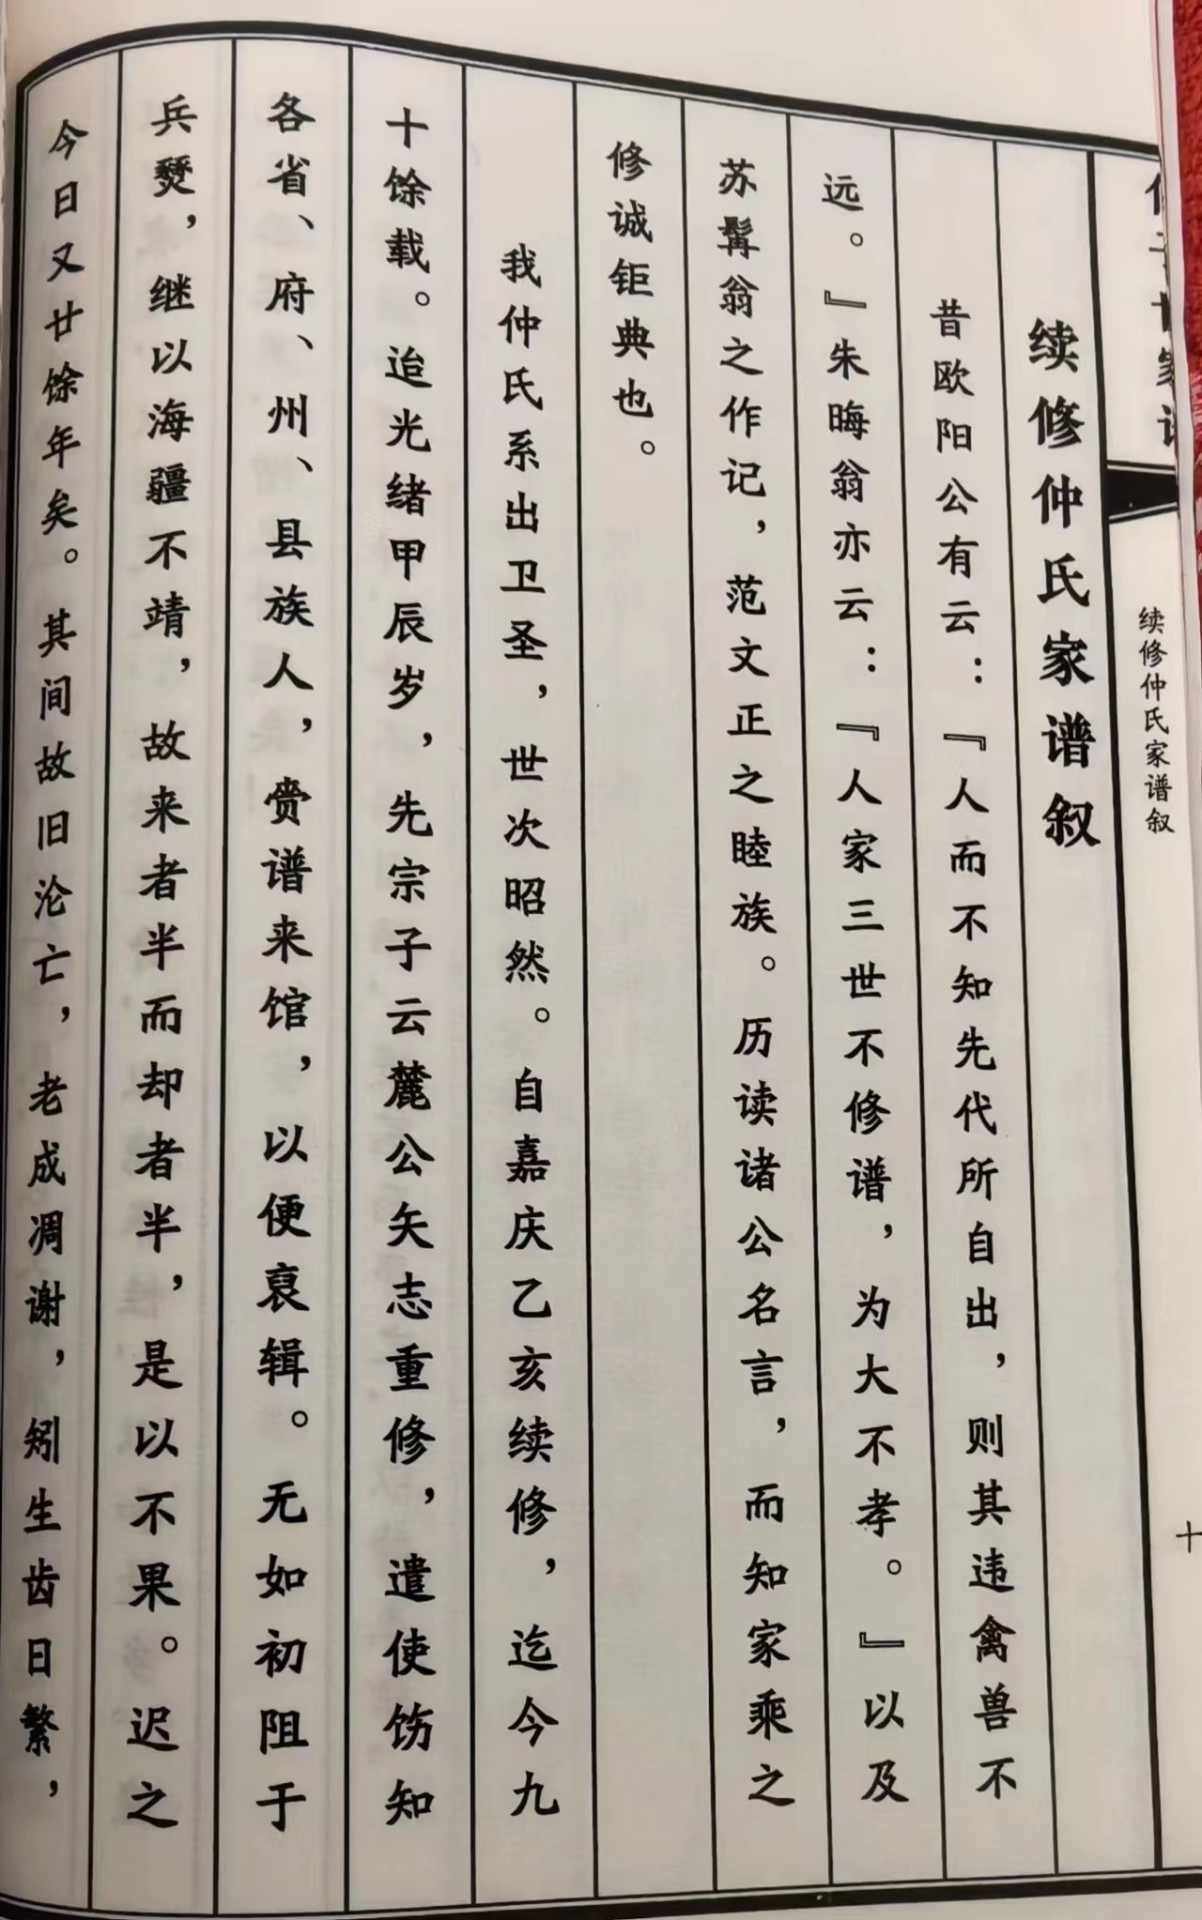 续修仲氏家谱叙
十
续修仲氏家谱叙
昔欧阳公有云：『人而不知先代所自出，则其违禽兽不
远。』朱晦翁亦云：『人家三世不修谱，为大不孝。』以及
苏髯翁之作记，范文正之睦族。历读诸公名言，而知家乘之
修诚钜典也。
我仲氏系出卫圣，世次昭然。自嘉庆乙亥续修，迄今九
十馀载。迨光绪甲辰岁，先宗子云麓公矢志重修，遣使饬知
各省、府、州、县族人，赍谱来馆，以便裒辑。无如初阻于
兵燹，继以海疆不靖，故来者半而却者半，是以不果。迟之
今日又廿馀年矣。其间故旧沦亡，老成凋谢，矧生齿日繁，